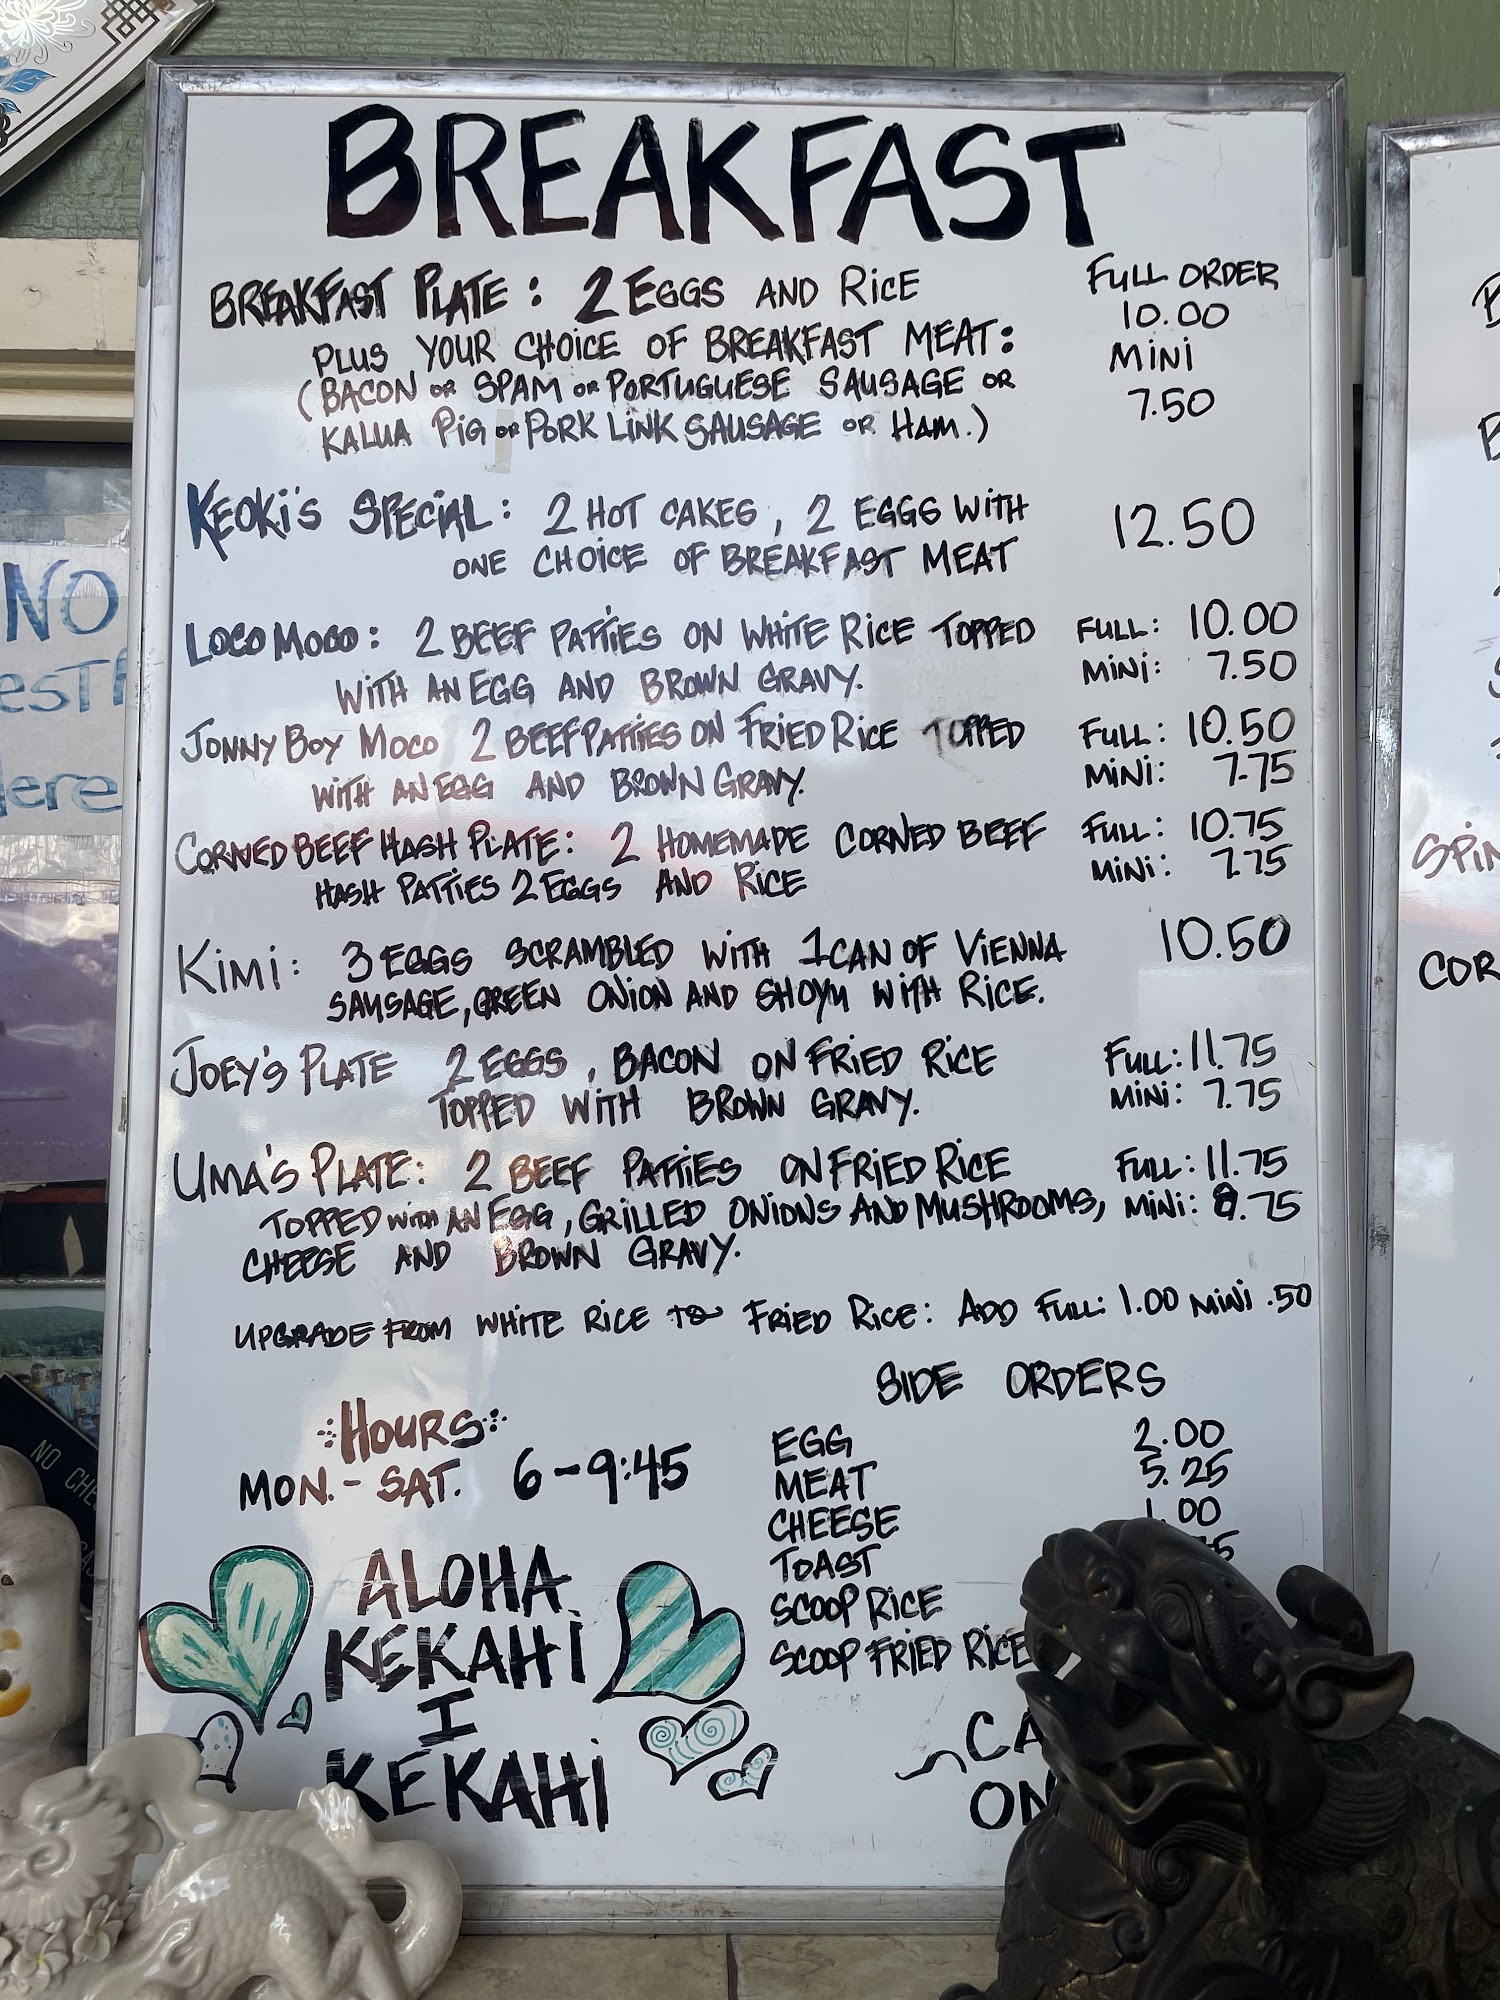 BREAKFAST
BREAKFAST PLATE: 2 EGGS AND RICE
PLUS YOUR CHOICE OF BREAKFAST MEAT:
(BACON OR SPAM OR PORTUGUESE SAUSAGE OR
KALUA PIG OR PORK LINK SAUSAGE OR HAM.)
FULL ORDER
10.00
MINI
7.50
KEOKI'S SPECIAL: 2 HOT CAKES, 2 EGGS WITH
ONE CHOICE OF BREAKFAST MEAT
12.50
LOCO MOCO: 2 BEEF PATTIES ON WHITE RICE TOPPED
WITH AN EGG AND BROWN GRAVY.
FULL: 10.00
MINI: 7.50
JONNY BOY MOCO 2 BEEF PATTIES ON FRIED RICE TOPPED
WITH AN EGG AND BROWN GRAVY.
FULL: 10.50
MINI: 7.75
CORNED BEEF HASH PLATE: 2 HOMEMADE CORNED BEEF
HASH PATTIES 2 EGGS AND RICE
FULL: 10.75
MINI: 7.75
KIMI: 3 EGGS SCRAMBLED WITH 1 CAN OF VIENNA
SAUSAGE, GREEN ONION AND SHOYU WITH RICE.
10.50
JOEY'S PLATE 2 EGGS, BACON ON FRIED RICE
TOPPED WITH BROWN GRAVY.
FULL: 11.75
MINI: 7.75
UMA'S PLATE: 2 BEEF PATTIES ON FRIED RICE
TOPPED WITH AN EGG, GRILLED ONIONS AND MUSHROOMS,
CHEESE AND BROWN GRAVY.
FULL: 11.75
MINI: 8.75
UPGRADE FROM WHITE RICE TO FRIED RICE: ADD FULL: 1.00 MINI .50
HOURS:
MON. - SAT. 6-9:45
ALOHA
KEKAHI
I
KEKAHI
SIDE ORDERS
EGG 2.00
MEAT 5.25
CHEESE 1.00
TOAST
SCOOP RICE
SCOOP FRIED RICE
CA
ON
NO
ere
NO CHE
SPIN
COR